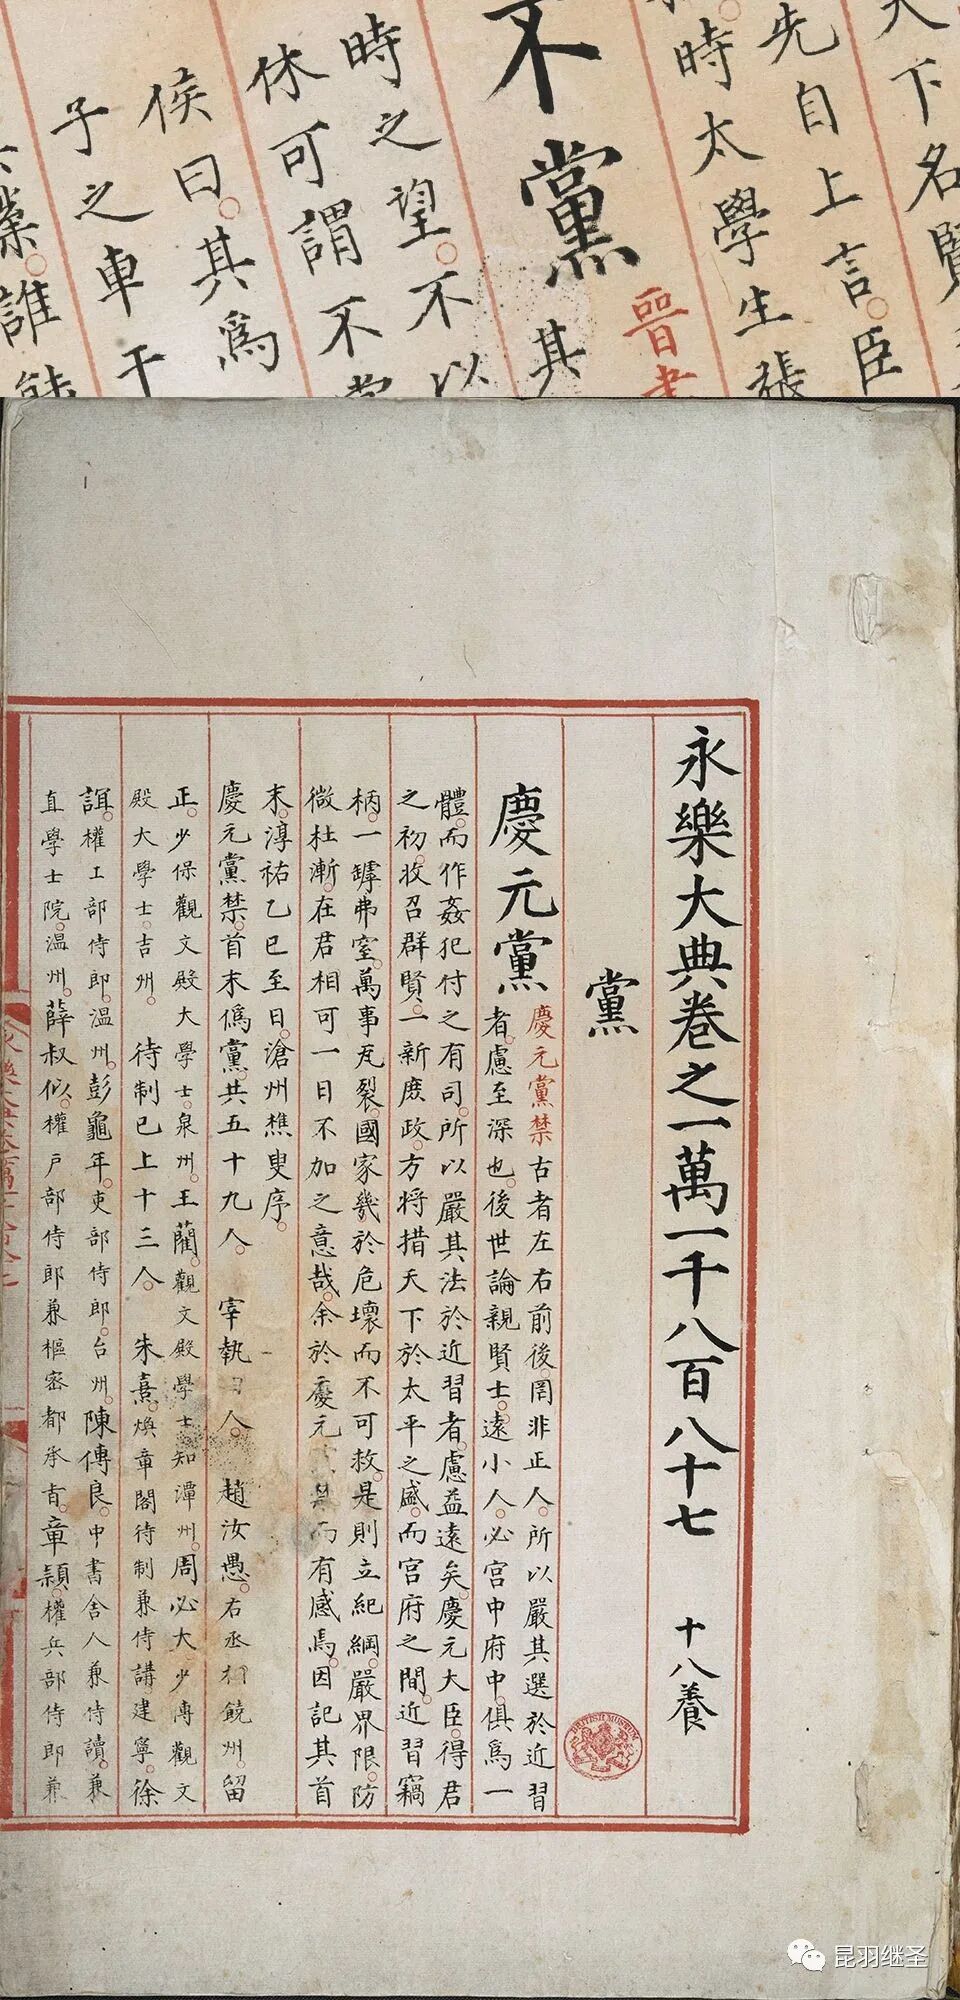 下名賢
先自上言。臣
時太學生張
不黨 晉書
其
時之望。不以
休可謂不黨
侯曰。其爲
子之車干
誰能
永樂大典卷之一萬一千八百八十七 十八養
黨
慶元黨
慶元黨禁 古者左右前後。罔非正人。所以嚴其選於近習
者。慮至深也。後世論親賢士。遠小人。必宮中府中。俱爲一
體。而作姦犯付之有司。所以嚴其法於近習者。慮益遠矣。慶元大臣。得君
之初。收召群賢。一新庶政。方將措天下於太平之盛。而宮府之間。近習竊
柄。一罅弗窒。萬事瓦裂。國家幾於危壞而不可救。是則立紀綱。嚴界限。防
微杜漸。在君相可一日不加之意哉。余於慶元其而有感焉。因記其首
末。淳祐乙巳至日。滄州樵叟序。
慶元黨禁。首末僞黨。共五十九人。 宰執人。 趙汝愚。右丞相饒州。留
正。少保觀文殿大學士。泉州。王藺。觀文殿學士知潭州。周必大少傅觀文
殿大學士。吉州。 待制已上十三人。 朱熹。煥章閣待制兼侍講建寧。徐
誼。權工部侍郎。溫州。彭龜年。吏部侍郎。台州。陳傅良。中書舍人兼侍讀。兼
直學士院。溫州。薛叔似。權戶部侍郎兼樞密都承旨。章穎。權兵部侍郎兼
BRITISH MUSEUM
昆羽继圣